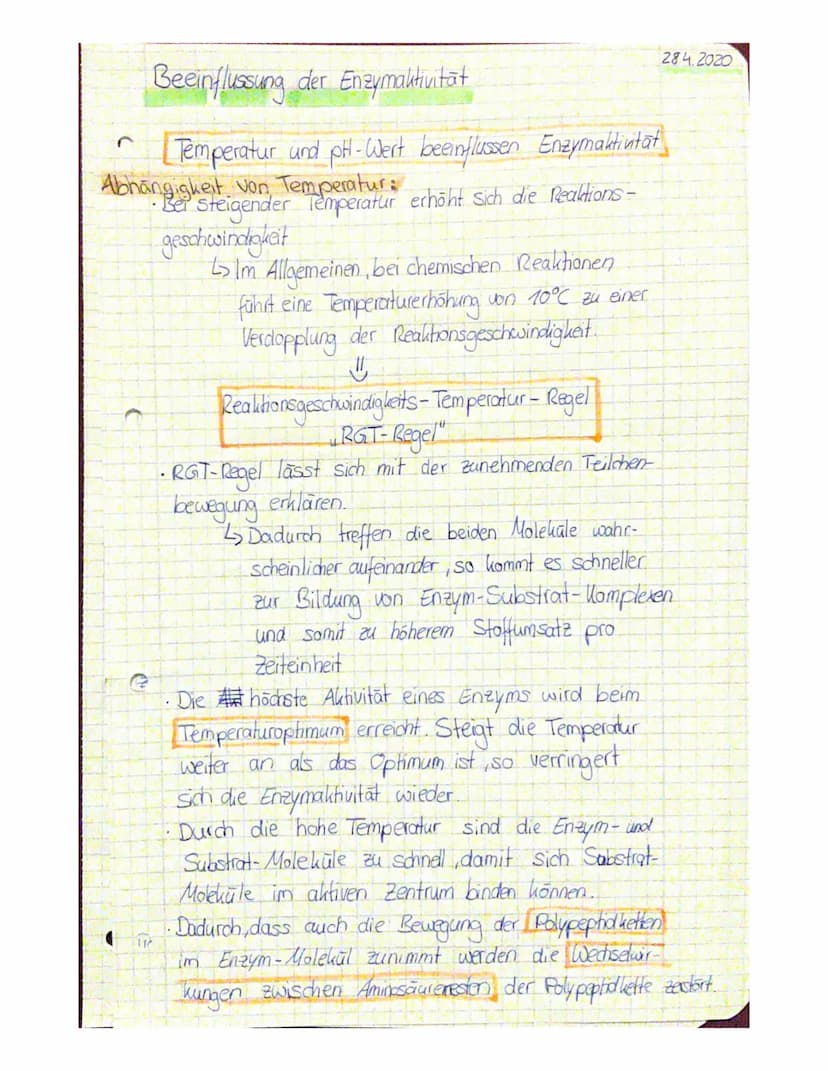 28.4.2020
Beeinflussung der Enzymaktivität
Temperatur und pH-Wert beeinflussen Enzymaktivität
Abhängigkeit von Temperatur:
· Bei steigender Temperatur erhöht sich die Reaktions-
geschwindigkeit
↳ Im Allgemeinen, bei chemischen Reaktionen
führt eine Temperaturerhöhung von 10°C zu einer
Verdopplung der Reaktionsgeschwindigkeit.
⇓
Reaktionsgeschwindigkeits-Temperatur-Regel
„RGT-Regel"
· RGT-Regel lässt sich mit der zunehmenden Teilchen-
bewegung erklären.
↳ Dadurch treffen die beiden Moleküle wahr-
scheinlicher aufeinander, so kommt es schneller
zur Bildung von Enzym-Substrat-Komplexen
und somit zu höherem Stoffumsatz pro
Zeiteinheit
· Die höchste Aktivität eines Enzyms wird beim
Temperaturoptimum erreicht. Steigt die Temperatur
weiter an als das Optimum ist, so verringert
sich die Enzymaktivität wieder.
· Durch die hohe Temperatur sind die Enzym- und
Substrat-Moleküle zu schnell, damit sich Substrat-
Moleküle im aktiven Zentrum binden können.
· Dadurch, dass auch die Bewegung der Polypeptidketten
im Enzym-Molekül zunimmt werden die Wechselwir-
kungen zwischen Aminosäureresten der Polypeptidkette zerstört.